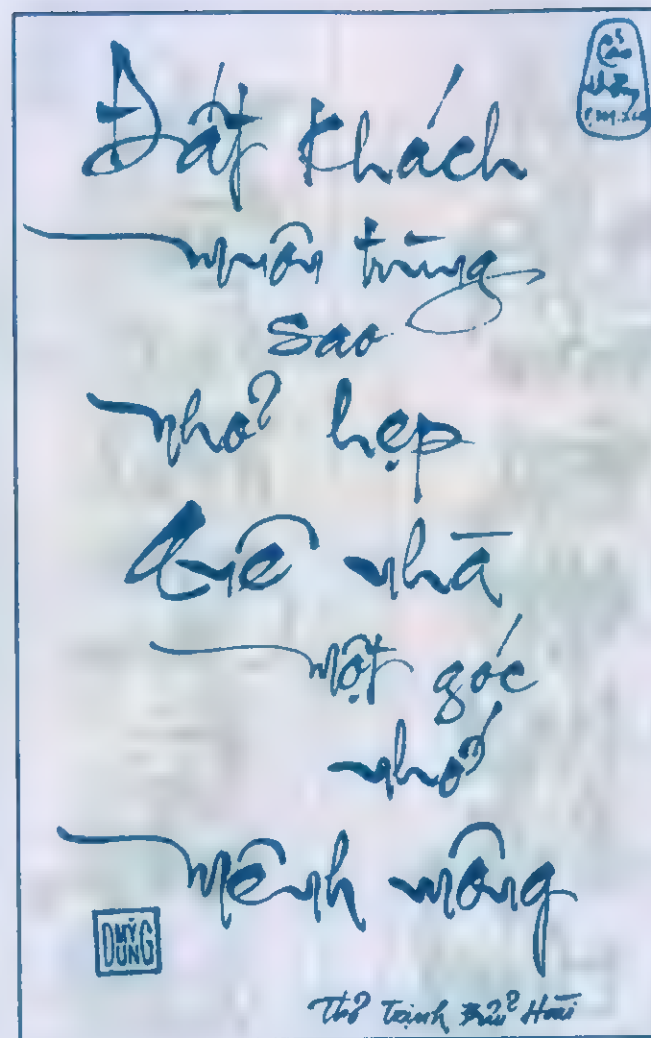 Đất khách
muôn trùng
sao
nhỏ hẹp
Quê nhà
một góc
nhớ
mênh mông
MỸ DUNG
Thơ Trịnh Bửu Hoài